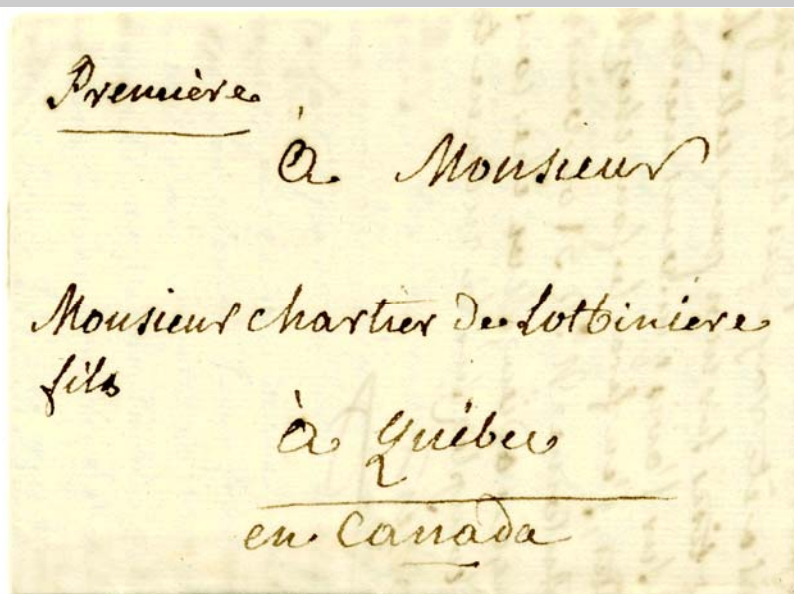 Première
à Monsieur
Monsieur chartier De Lotbiniere
fils
à Québec
en Canada